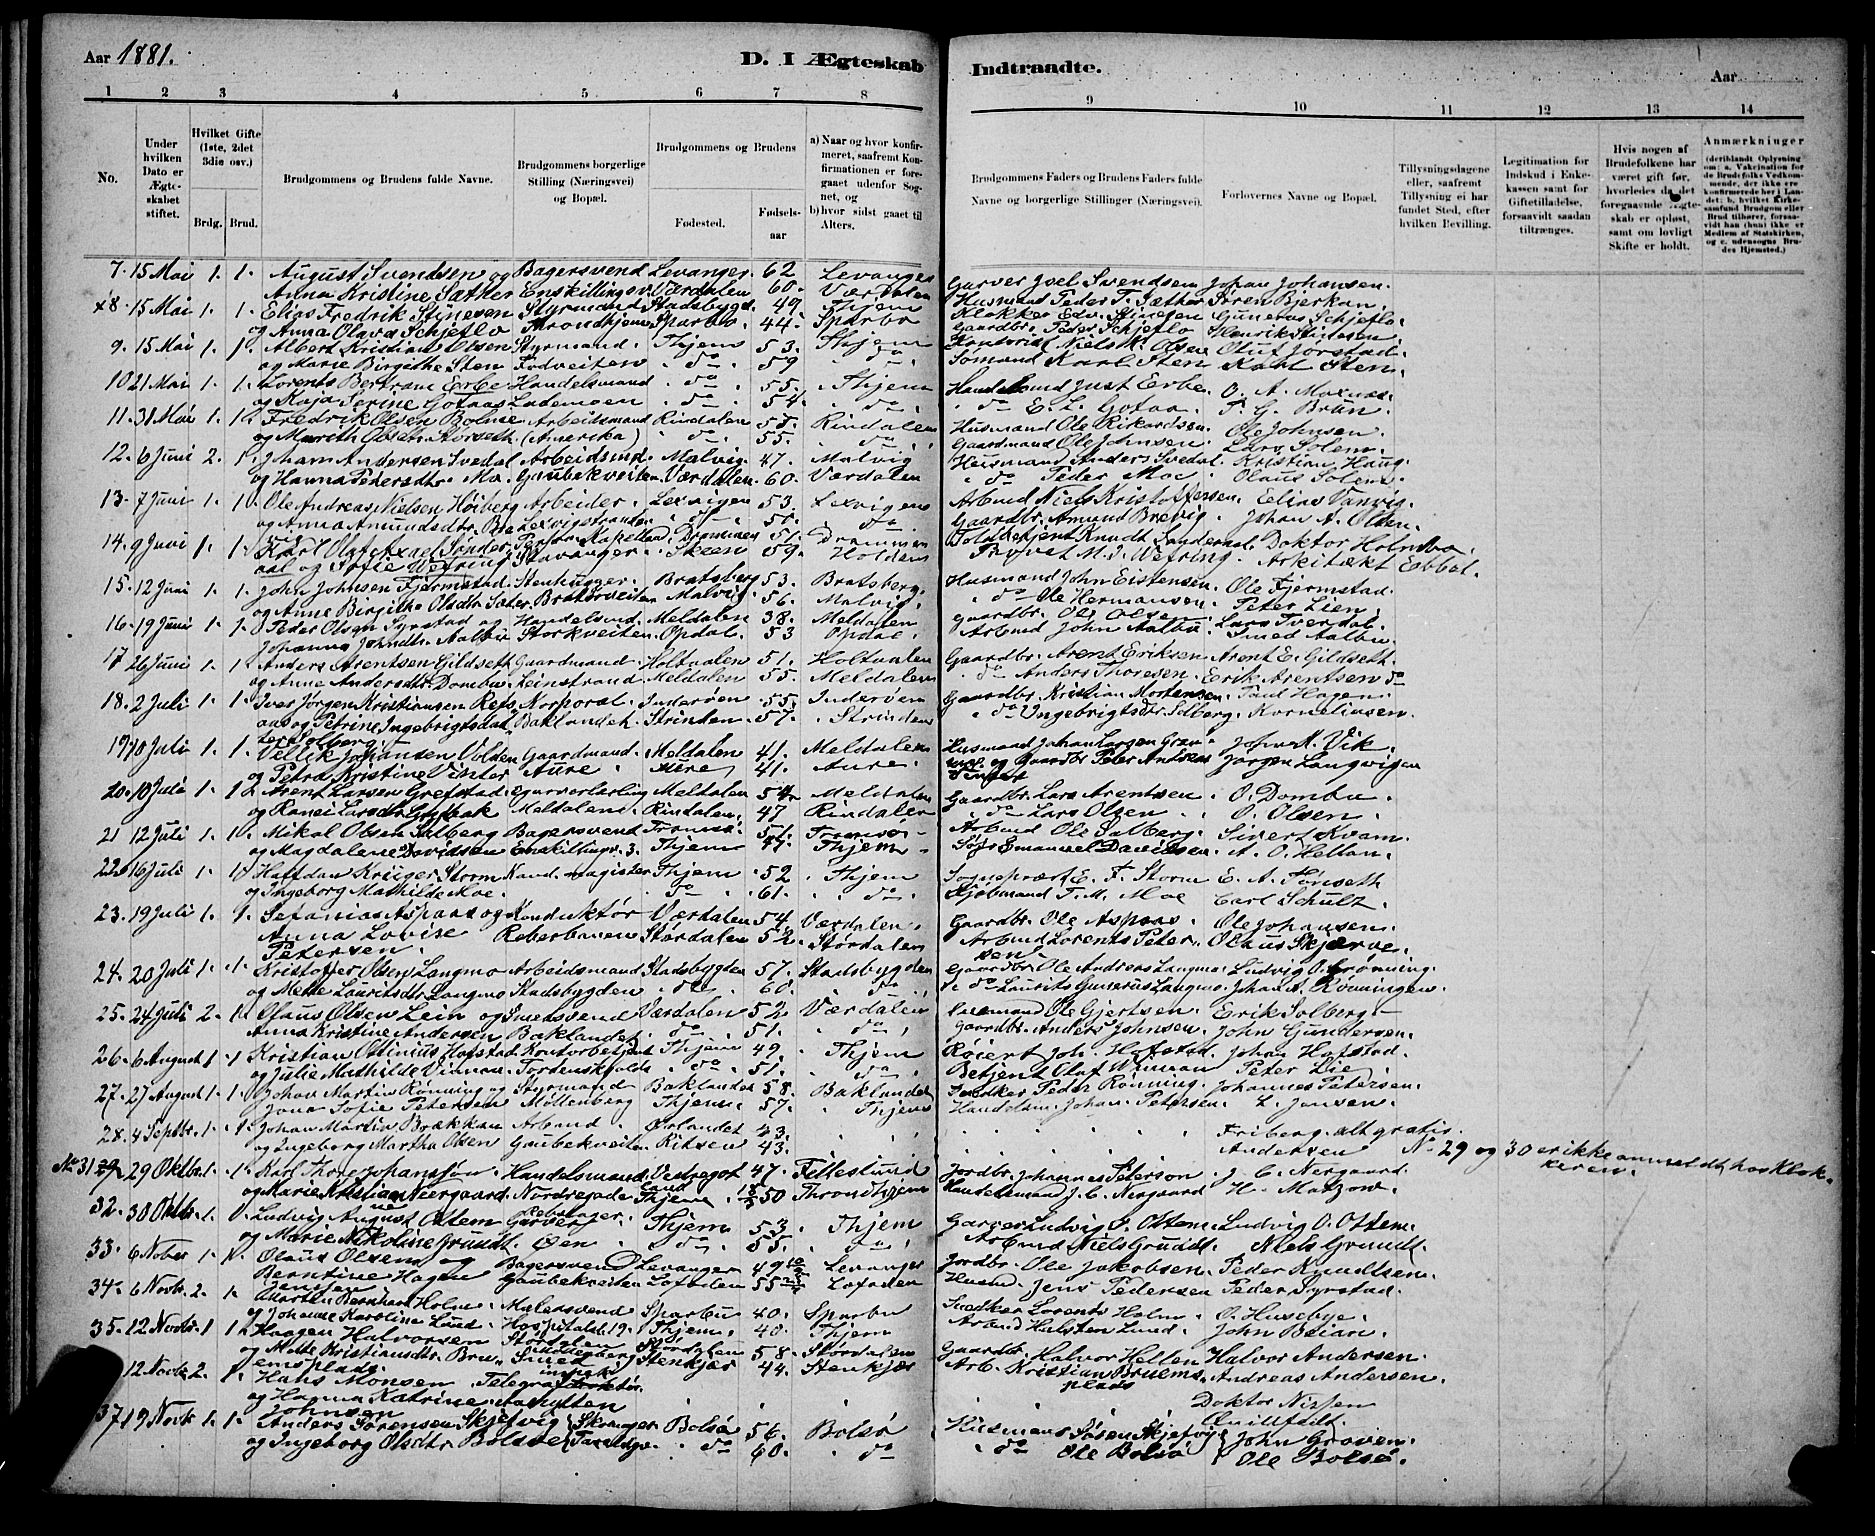 Aar 1881.
D. I Ægteskab Indtraadte.
Aar
1 2 3 4 5 6 7 8 9 10 11 12 13 14
No.
Under hvilken Dato er Ægteskabet stiftet.
Hvilket Gifte (1ste, 2det 3die osv.)
Brdg. Brud.
Brudgommens og Brudens fulde Navne.
Brudgommens borgerlige Stilling (Næringsvei) og Bopæl.
Brudgommens og Brudens
Fødested.
Fødsels-aar
a) Naar og hvor konfirmeret, saafremt Konfirmationen er foregaaet udenfor Sognet, og
b) hvor sidst gaaet til Alters.
Brudgommens Faders og Brudens Faders fulde Navne og borgerlige Stillinger (Næringsvei).
Forlovernes Navne og Bopæl.
Tillysningsdagene eller, saafremt Tillysning ei har fundet Sted, efter hvilken Bevilling.
Legitimation for Indskud i Enkekassen samt for Giftetilladelse, forsaavidt saadan tiltrænges.
Hvis nogen af Brudefolkene har været gift før, hvorledes da det foregaaende Ægteskab er opløst, samt om lovligt Skifte er holdt.
Anmærkninger
7. 15 Mai 1. 1. August Svendsen og Bagersvend Levanger. 62 Levanger Garver Joel Svendsen Johan Johansen.
Anna Kristine Sæther Enskillingsv. Værdalen 60. Værdalen Husmand Peder T. Sæther Søren Bjerkan.
x8. 15 Mai 1. 1. Elias Fredrik Stinesen Styrmand Stadsbygd. 49. Thjem Klokker Edv. Stinesen Gunerus Schjeflo.
og Anna Olava Schjeflo Trondhjem Sparbo 44. Sparbo Gaardbr. Peder Schjeflo Henrik Stinesen.
9. 15 Mai 1. 1. Albert Kristian Olsen Styrmand. Thjem 53. Thjem Kontorist Niels K. Olsen Oluf Jorstad.
og Marie Birgethe Sten Fodveiten do 59 do Sømand Karl Sten Karl Sten.
10 21 Mai 1. 1. Lorents Bertram Erbe Handelsmand. do 55. Thjem Handelsmd Just Erbe. O. A. Moxnæs.
og Kaja Serine Gotaas Lademoen do 54. do do E. L. Gotaa. T. G. Brun.
11. 31 Mai 1. 1. Fredrik Olsen Bolme Arbeidsmand Rindalen 58. Rindalen Husmand Ole Rikardsen. Ole Johnsen.
og Marith Olsdtr (Amerika) do 55. do Gaardmand Ole Johnsen. Lars Solem.
12. 6 Juni 2. 1. Johan Andersen Svedal Arbeidsm. Malvig. 47. Malvig Husmand Anders Svedal. Kristian Haug.
og Hanna Pedersdtr. Mo. Gaubekveiten Værdalen. 60. Værdalen do Peder Moe. Olaus Solem.
13. 7 Juni 1. 1. Ole Andreas Nielsen Høiberg Arbeider. Lexvigen 53. Lexvigen Arbmd Niels Kristoffersen. Elias Vanvig.
og Anna Amundsdtr. Brevig Lexvigstranden do 50. do Gaardbr. Amund Brevig. Johan A. Olsen.
14. 9 Juni 1. 1. Karl Olaf Axel Sønderaal Kapelland. Drammen 51. Drammen Toldbetjent Knudt Søndenaal. Doktor Holmboe.
og Sofie Wefring Stavanger. Skeen 59. Holden Provst M. J. Wefring. Arkitekt Ebbel.
15. 12 Juni 1. 1. John Johnsen Fjermstad. Stenhugger. Bratsberg 53. Bratsberg. Husmand John Eistensen. Ole Fjermstad.
og Anne Birgithe Olsdtr Sæter. Bratørveiten Malvig. 56. Malvig. do Ole Hermansen. Peter Lien.
16. 19 Juni 1. 1. Peder Olsen Syrstad og Handelssvd. Meldalen 38. Meldalen gaardbr. Ole Olsen. Lars Tverdal.
Johanna Johndtr. Aalbu Storkveiten. Opdal. 53 Opdal. Arbmd John Aalbu. Smed Aalbu.
17 26 Juni 1. 1. Anders Arentsen Gildseth Gaardmand. Holtaalen 51. Holtaalen Gaardbr. Arent Eriksen Arent E. Gildseth.
og Anne Andersdtr. Dombu. Leinstrand Meldalen 55. Meldalen do Anders Thoresen. Erik Arentsen do
18. 2 Juli 1. 1. Iver Jørgen Kristiansen Reps Korporal. Inderøen 55. Inderøen Gaardbr. Kristian Mortensen. Paul Hagen.
aas og Petrine Ingebrigtsdatter Solberg Baklandet. Strinden 57. Strinden do Ingebrigtsdtr Solberg. Korneliusen.
19. 10 Juli 1. 1. Vellik Johansen Volden Gaardmand. Meldalen 41. Meldalen Husmand Johan Larsen Grav John K. Vik.
og Petra Kristine Vinter Aure. Aure 41. Aure. og Gaardbr Peter Andreas Vinter Jørgen Langvigen
20. 10 Juli 1. 1 2 Arent Larsen Grefstad Garverlærling Meldalen 54. Meldalen Gaardbr. Lars Arentsen. O. Dombu.
og Ranei Larsdtr. Meldalen. Rindalen. 47 Rindalen do Lars Olsen. O. Olsen.
21 12 Juli 1. 1. Mikal Olsen Solberg Bagersvend Tromsø. 54. Tromsø. Arbmd Ole Solberg. Sivert Kvam.
og Magdalene Davidsen Enskillingv. 3. Thjem 47. Thjem. Emanuel Davidsen. A. O. Hellan.
22. 16 Juli 1. 1. Halfdan Krieger Storm Kand. magister Thjem 52 Thjem Sognepræst E. F. Storm E. A. Tønseth
og Ingeborg Mathilde Moe. do 61. do. Kjøbmand T. M. Moe Carl Schulz.
23. 19 Juli 1. 1. Sefanias Aspaas og Konduktør Værdalen 54. Værdalen. Gaardbr. Ole Aspaas. Ole Johansen.
Anna Lovise Petersen. Reberbanen Størdalen 52. Størdalen Arbmd Lorents Petersen. Olaus Skjærve.
24. 20 Juli 1. 1. Kristoffer Olsen Langmo Arbeidsmand Stadsbygden 57. Stadsbygden Gaardbr. Ole Anders Langmo. Ludvig O. Grønning.
og Mette Lauritsdtr. Langmo Stadsbygden do 60. do do Laurits Gunerus Langmo. Johan A. Rønningen.
25. 24 Juli 2. 1. Olaus Olsen Lein og Smedsvend Værdalen 52. Værdalen Ole Gjertsen. Erik Solberg.
Anna Kristine Andersen Baklandet do 51. do. Gaardbr. Anders Johnsen. John Gundersen.
26. 6 August 1. 1. Kristian Ottinius Hofstad. Kontorbetjent Thjem 49. Thjem Røiert Joh. Hofstad. Johan Hofstad.
og Julie Mathilde Vinnan. Tordenskjolds do 51. do. Betjent Olaf Winnan Peter Lie.
27. 27 August 1. 1. Johan Martin Rønning og Styrmand Baklandet 58. Baklandet Snedker Peder Rønning. Johannes Petersen.
Jona Sofie Petersen Møllenberg Thjem. 57. Thjem Handelsm. Johan Petersen. L. Jensen.
28. 4 Septbr. 1. 1. Johan Martin Brækkan Arbmd. Ørlandet 43. Friberg. alt gratis.
og Ingeborg Martha Olsen Gaubekveiten Ritsen 43. Andersen
No 29 og 30 er ikke anmeldt hos Klokkeren.
No 31 29 29 Oktbr. 1. 1. Karl Thore Johansson. Handelsmand. Vestregot land 47. Fillestund Jordbr. Johannes Peterson J. C. Nergaard.
og Marie Kristiane Neergaard. Nordregade. Thjem. 50 Throndhjem Handelsmand J. C. Nergaard H. Matzow.
32. 30 Oktbr. 1. 1. Ludvig August Ottem Rebslager. Thjem 53. Thjem Garver Ludvig O. Ottem. Ludvig O. Ottem.
og Marie Nikoline Grundt. Øen do. 55. do Arbmd Niels Grundt. Niels Grundt.
33. 6 Novber 1. 1. Olaus Olsen og Bagersvend Levanger 49 Levanger Jordbr. Ole Jakobsen. Peder Knudtsen.
Berntine Hagen Jensen Gaubekveiten Lofoden 55 Lofoden Husmd. Jens Pedersen Peder Syrstad.
34. 6 Novbr. 2. 1. Morten Bernhart Holm. Malersvend. Sparbu 40. Sparbu Snedker Lorents Holm. O. Husebye.
og Johanne Karoline Lund. Hospitalsl. 19. Thjem. 40. Thjem Arbmd Halsten Lund. John Beian.
35. 12 Novbr. 1 1. Haagen Halvorsen Størdalen Størdalen 58. Størdalen Gaardbr. Halvor Hellen Halvor Andersen.
og Mette Kristiansdtr. Bruemsplads. Smed Stenkjær 44. Stenkjær Arb. Kristian Bruemsplads Andreas Andersen.
12 Novbr. 2. 1. Hans Monsen Telegrafinspektør. Doktor Nissen
og Hanna Katrine Johnsen Quillfeldt.
37. 19 Novbr. 1. 1. Anders Sørensen Skjefvig Skomager Bolsø 56. Bolsø Husmand Søren Skjefvig John Groven.
og Ingeborg Olsdtr. Bolsø do 60. do do Ole Bolsø Ole Bolsø.